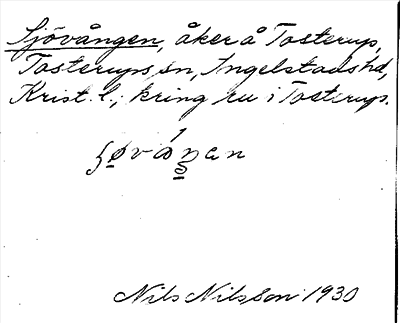 Sjövången, åker å Tosterup,
Tosterups sn, Ingelstads hd,
Krist. l.; kring ru i Tosterup.
Nils Nilsson 1930